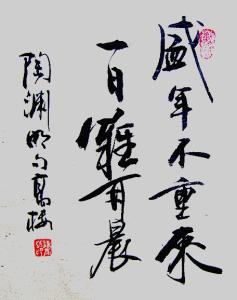 盛年不重來
一日難再晨
陶渊明句高楼